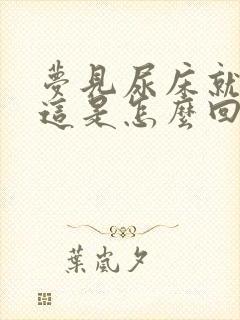 夢見尿床就
這是怎麼回
葉嵐夕